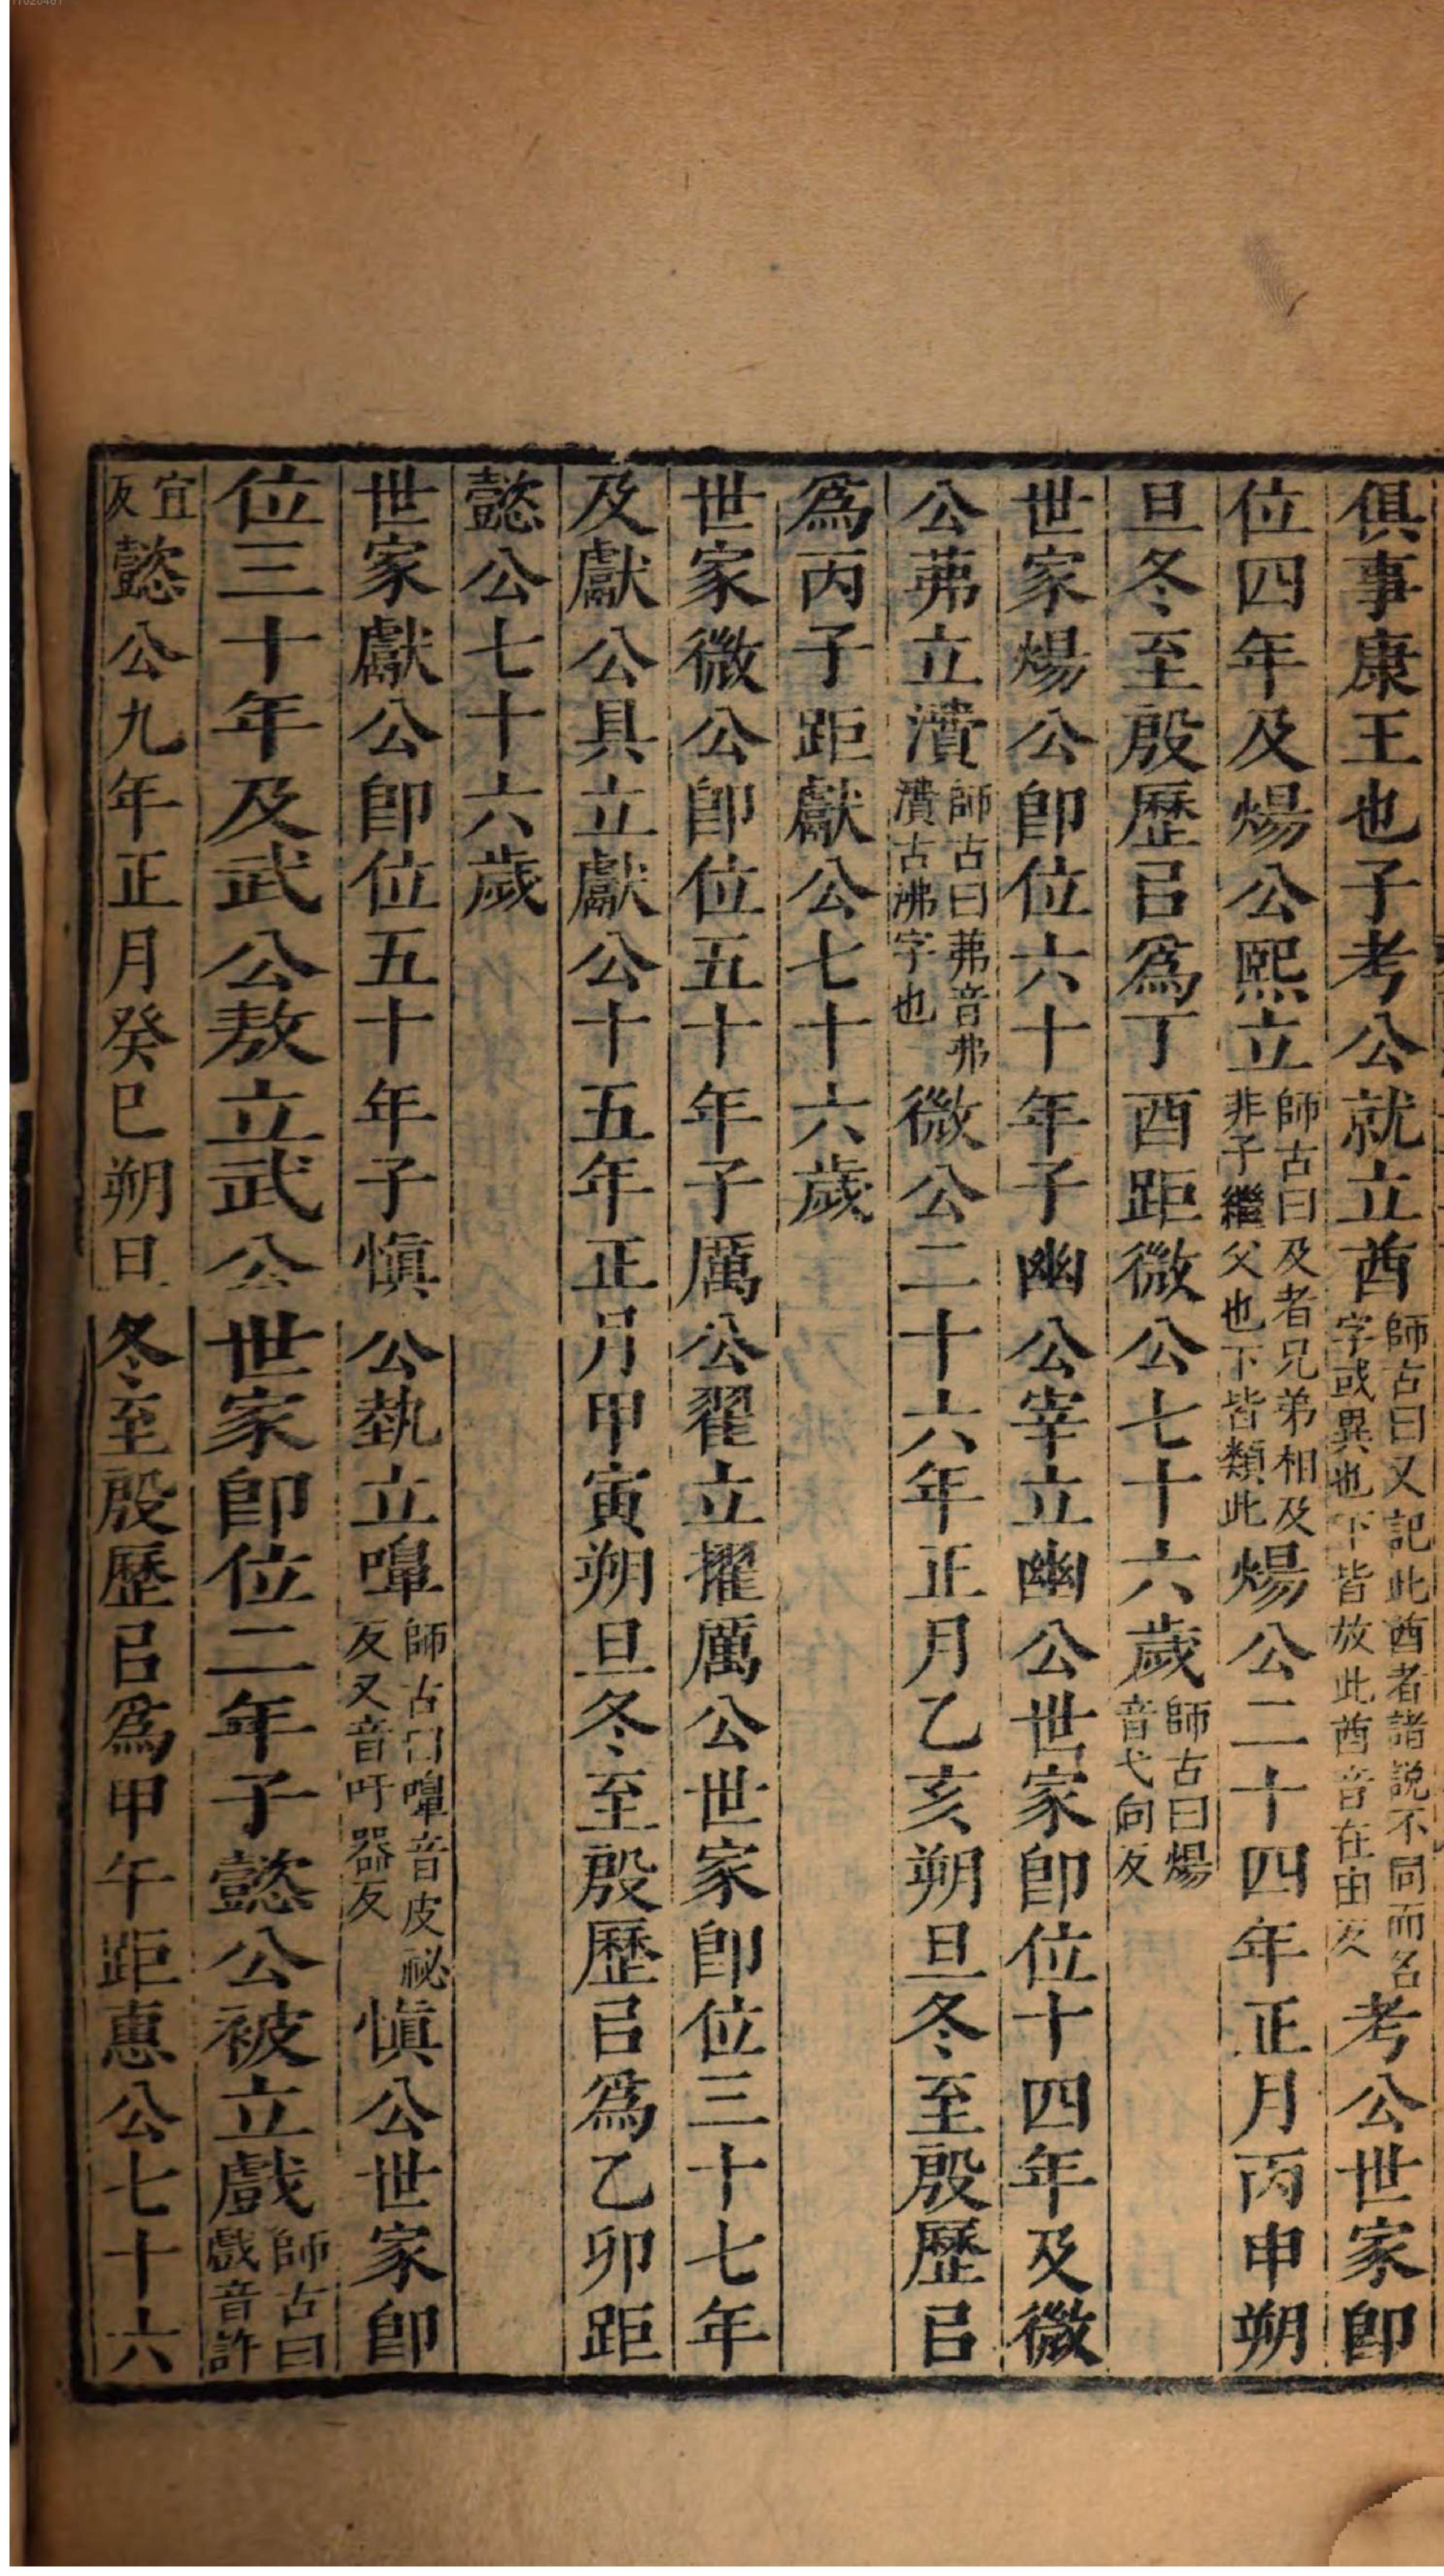 俱事康王也子考公就立酋師古曰又記此酋者諸説不同而名字或異也下皆放此酋音在由反考公世家卽
位四年及煬公熙立師古曰及者兄弟相及非子繼父也下皆類此煬公二十四年正月丙申朔
旦冬至殷歷㠯爲丁酉距微公七十六歲師古曰煬音弋向反
世家煬公卽位六十年子幽公宰立幽公世家卽位十四年及微
公茀立㵒師古曰茀音弗㵒古沸字也微公二十六年正月乙亥朔旦冬至殷歷㠯
爲丙子距獻公七十六歲
世家微公卽位五十年子厲公翟立擢厲公世家卽位三十七年
及獻公具立獻公十五年正月甲寅朔旦冬至殷歷㠯爲乙卯距
懿公七十六歲
世家獻公卽位五十年子愼公埶立嚊師古曰嚊音皮祕反又音吁器反愼公世家卽
位三十年及武公敖立武公世家卽位二年子懿公被立戲師古曰戲音許
宜反懿公九年正月癸巳朔旦冬至殷歷㠯爲甲午距惠公七十六